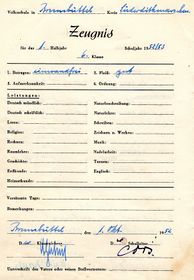 Volksschule in Brunsbüttel Kreis Süderdithmarschen
Zeugnis
für das 1. Halbjahr Schuljahr 1952/53
6. Klasse
1. Betragen: einwandfrei 2. Fleiß: gut
3. Aufmerksamkeit: 4. Ordnung:
Leistungen:
Deutsch mündlich: Naturbeschreibung:
Deutsch schriftlich: Naturlehre:
Lesen: Schreiben:
Religion: Zeichnen u. Werken:
Rechnen: Musik:
Raumlehre: Turnen:
Geschichte: Nadelarbeit:
Erdkunde: Hauswirtschaft:
Englisch:
Heimatkunde:
Versäumte Tage:
Bemerkungen:
Brunsbüttel, den 1. Okt. 1952
D Klassenlehrer D Schulleiter
Unterschrift des Vaters oder seines Stellvertreters: